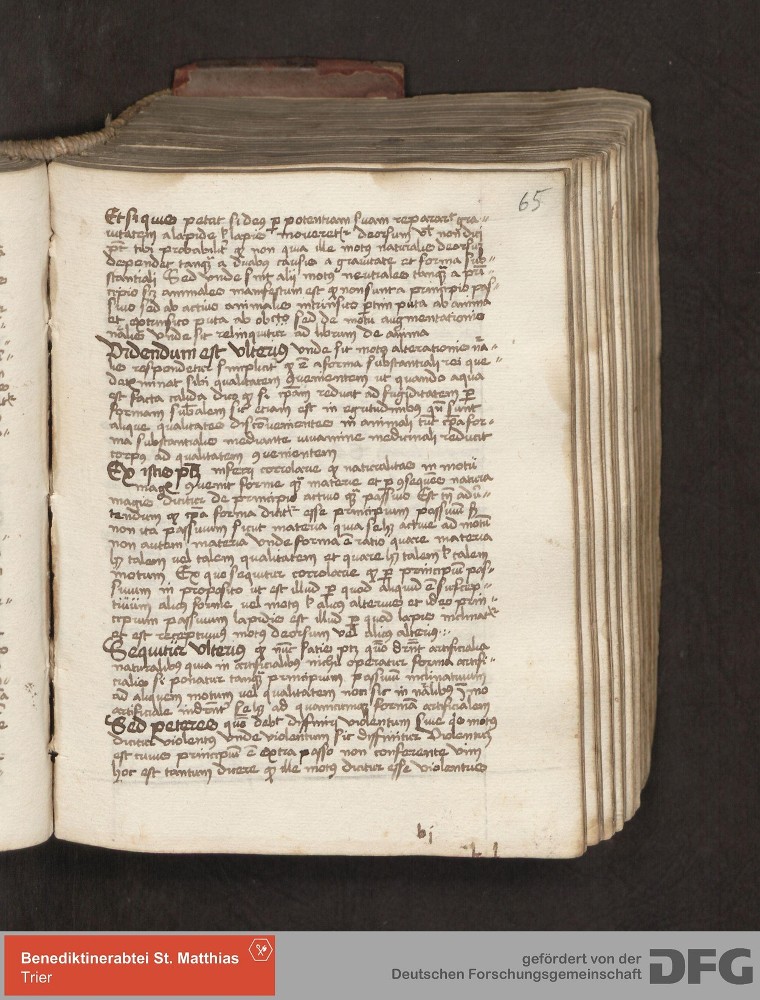 65
Et si quis petat si deus per potentiam suam repararet gra-
vitatem a lapide lapis moveretur deorsum vel non dici
potest tibi probabiliter quod non quia ille motus naturalis deorsum
dependet tanquam a duabus causis a gravitate et forma sub-
stantiali Sed unde sint alii motus neutrales tanquam a prin-
cipio animales manifestum est quod non sunt a principio pas-
sivo sed ab activo animalis intrinsico puta ab anima
et extrinsico puta ab obiecto sed de motu augmentationis
naturalis unde sit relinquitur ad librum de anima
Videndum est ulterius unde sit motus alterationis na-
lis respondetur simpliciter quod est a forma substantiali rei que
determinat sibi qualitatem convenientem ut quando aqua
est facta calida dico quod si ipsam reducat ad frigiditatem per
formam substantialem sic etiam est in egritudinibus quando sunt
alique qualitates disconvenientes in animali tunc ipsa for-
ma substantialis mediante iuvamine medicinali reducit
corpus ad qualitatem convenientem
Ex istis patet infertur correlarie quod naturalitas in motu
magis convenit forme quam materie et per consequens natura
magis dicitur de principio activo quam passivo Est tamen adver-
tendum quod ipsa forma dicitur esse principium passivum sed
non ita passivum sicut materia quia se habet active ad motum
non autem materia unde forma est ratio quare materia
habet talem vel talem qualitatem et quare habet talem talem
motum Ex quo sequitur correlarie quod per principium pas-
sivum in proposito ut est illud per quod aliquid est suscep-
tivum alicuius forme vel motus alicuius alterius et ideo prin-
cipium passivum lapidis est illud per quod lapis inclinatur
et est receptivus motus deorsum vel alicuius alterius
Sequitur ulterius quod nunc patet quomodo differunt artificialia
naturalibus quia in artificialibus nichil operatur forma artifi-
cialis si ponatur tanquam principium passivum inclinativum
ad aliquem motum vel qualitatem non sic in naturalibus
artificiale se habet ad quamcumque formam artificialem
Sed peteres quomodo debet diffiniri violentum sive quis motus
dicitur violentus unde violentum sic diffinitur Violentum
est cuius principium est extra passo non conferente vim
hoc est tantum dicere quod ille motus dicitur esse violentus
b j
Benediktinerabtei St. Matthias
Trier
gefördert von der
Deutschen Forschungsgemeinschaft
DFG